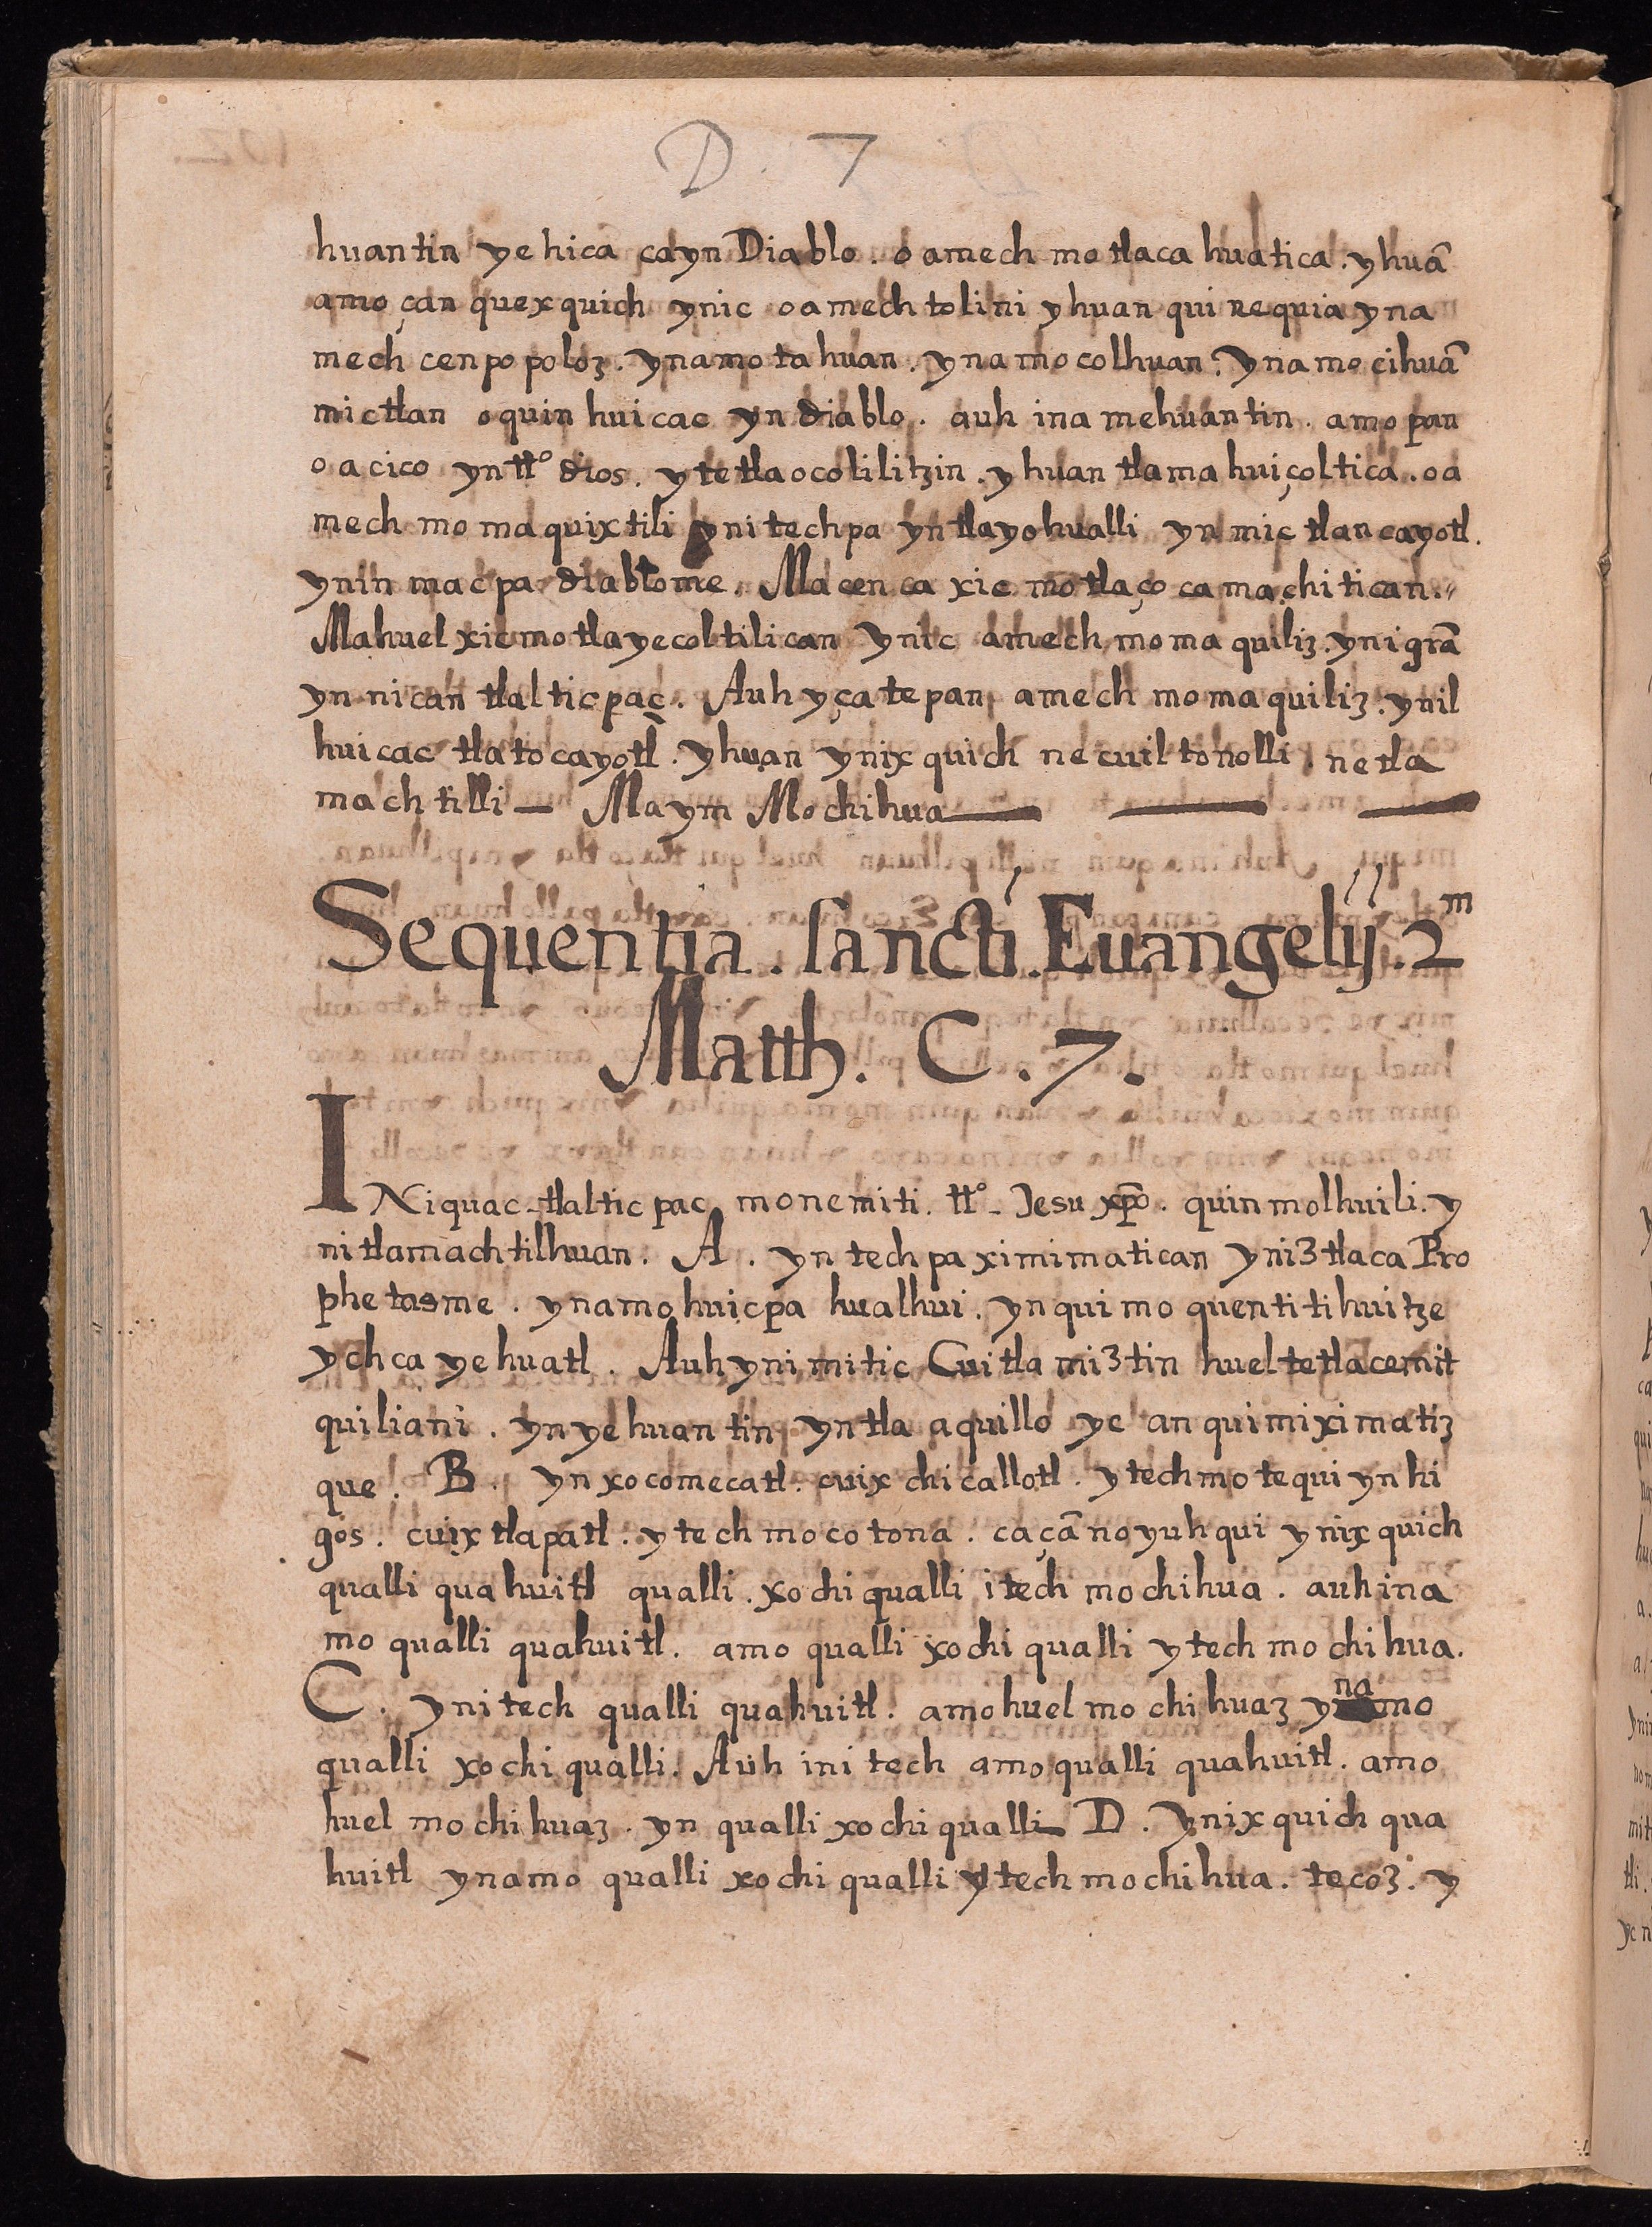 D. 7
huantin yehica cayn Diablo. o amech motlacahuatica. yhuā
amo çan quexquich ynic oamechtolini yhuan quinequia yna
mech cenpopoloz. ynamotahuan. ynamocolhuan. ynamocihuā
mictlan oquinhuicac yn diablo. auh inamehuantin. amopan
oacico yn tt.º dios. ytetlaocolilitzin. yhuan tlamahuiçoltica. oa
mechmomaquixtili ynitechpa yntlayohualli yn mictlancayotl.
yninmacpa diablome. Macenca xicmotlaçocamachitican.
Mahuel xicmotlayecoltilican ynic amechmomaquiliz. ynigrā
yn nican tlalticpac. Auh yçatepan amechmomaquiliz. ynil
huicac tlatocayotl. yhuan ynixquich necuiltonolli. netla
machtilli — Maym Mochihua —— —— ——
Sequentia. sancti. Euangelij. 2m
Matth. C. 7.
INiquac tlalticpac monemiti. tt.º Jesu xpō. quinmolhuili. y
nitlamachtilhuan. A. yntechpa ximimatican yniztlaca Pro
phetasme. ynamohuicpa hualhui. ynquimoquentitihuitze
ychcayehuatl. Auh ynimitic Cuitlamiztin hueltetlacemit
quiliani. ynyehuantin yntla aquillo ye anquimiximatiz
que. B. yn xocomecatl. cuix chicallotl. ytech motequi ynhi
gos. cuix tlapatl. ytech mocotona. caçānoyuhqui ynixquich
qualli quahuitl qualli. xochiqualli itech mochihua. auh ina
mo qualli quahuitl. amo qualli xochiqualli ytech mochihua.
C. ynitech qualli quahuitl. amohuel mochihuaz ynamo
qualli xochiqualli. Auh initech amoqualli quahuitl. amo
huel mochihuaz. yn qualli xochiqualli D. ynixquich qua
huitl ynamo qualli xochiqualli ytech mochihua. tecoz. y